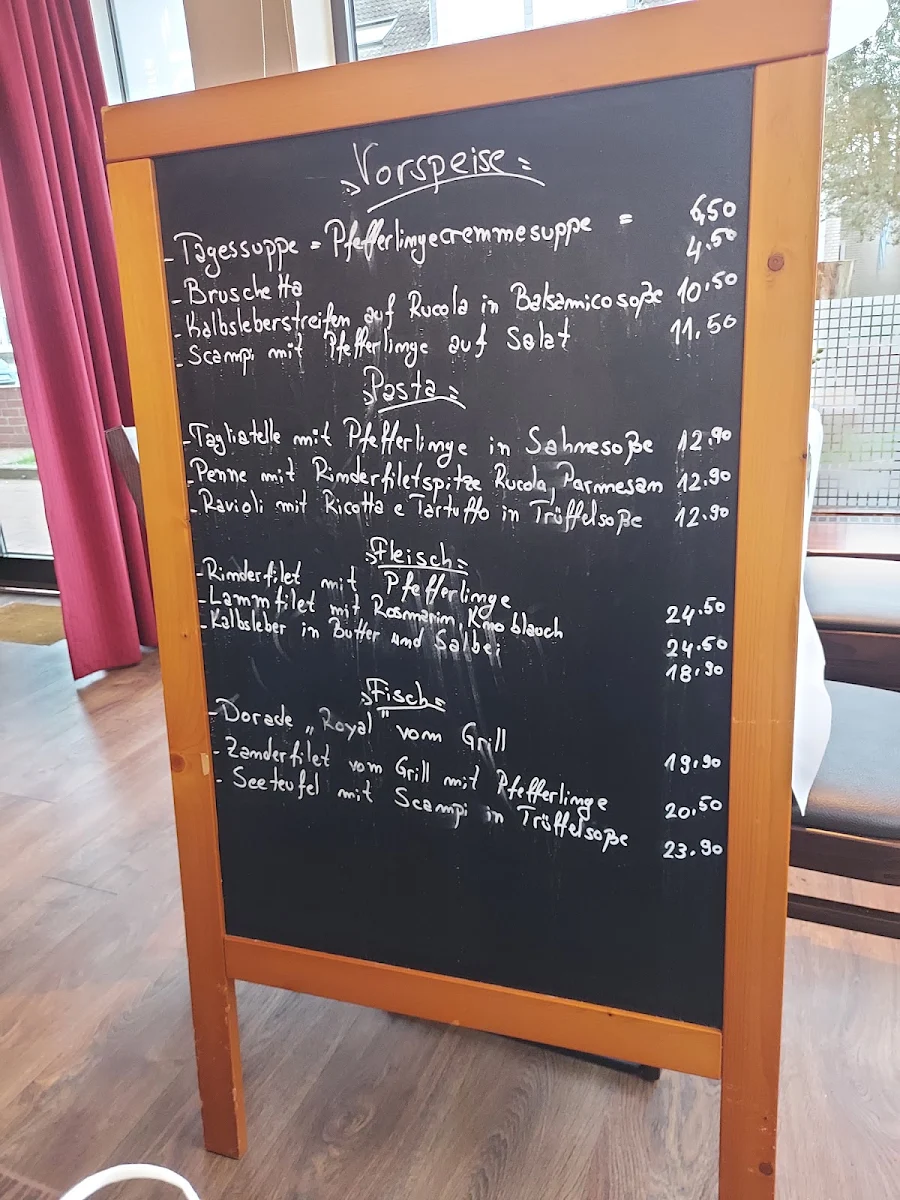 „Vorspeise"
- Tagessuppe = Pfefferlingecremmesuppe = 6,50
- Bruschetta 4.50
- Kalbsleberstreifen auf Rucola in Balsamicosoße 10.50
- Scampi mit Pfefferlinge auf Salat 11.50
„Pasta"
- Tagliatelle mit Pfefferlinge in Sahnesoße 12.90
- Penne mit Rinderfiletspitze Rucola, Parmesan 12.90
- Ravioli mit Ricotta e Tartuffo in Trüffelsoße 12.90
„Fleisch"
- Rinderfilet mit Pfefferlinge 24.50
- Lammfilet mit Rosmarin, Knoblauch 24.50
- Kalbsleber in Butter und Salbei 18.90
„Fisch"
- Dorade „Royal" vom Grill 19.90
- Zanderfilet vom Grill mit Pfefferlinge 20,50
- Seeteufel mit Scampi in Trüffelsoße 23.90